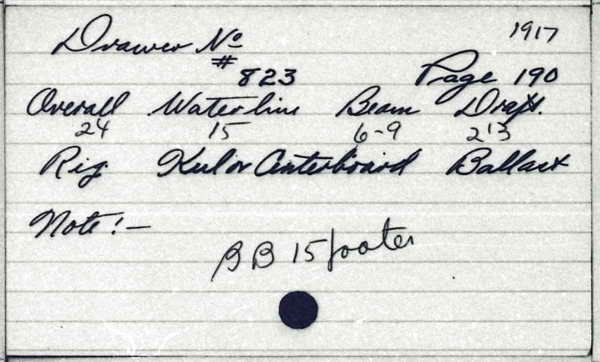 1917
Drawer No
# 823 Page 190
Overall Waterline Beam Draft.
24 15 6-9 2'3
Rig. Keel or Centerboard Ballast
Note:-
BB 15 footer